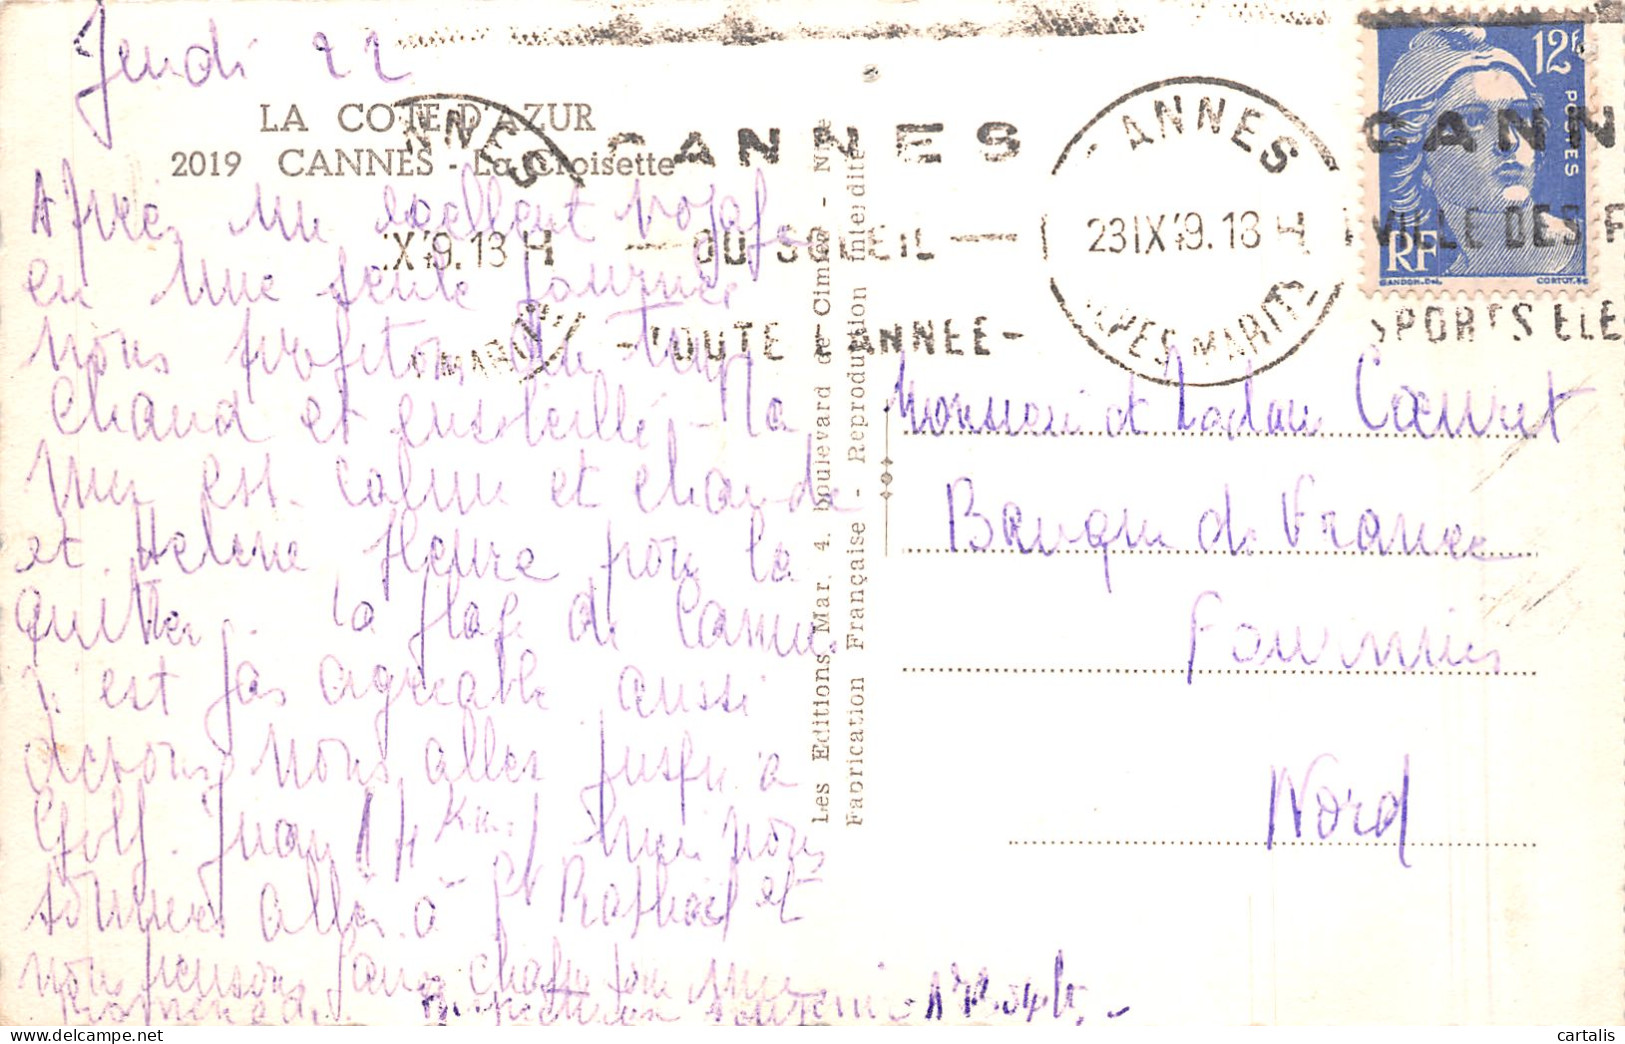 Jeudi 22
LA COTE D'AZUR
2019 CANNES - La Croisette
Après un excellent voyage
en une seule journée
nous profitons du temps
chaud et ensoleillé - La
mer est calme et chaude
et Hélène pleure pour la
quitter. La plage de Cannes
n'est pas agréable aussi
devons nous aller jusqu'à
Golf Juan
nous
sommes allés à St Raphaël et
nous pensons faire chaque jour une
Les Editions Mar. 4. boulevard de Cimiez - Nice
Fabrication Française - Reproduction interdite
NNES
IX 49.18 H
MARITI
CANNES
DU SOLEIL
TOUTE L'ANNEE
CANNES
23 IX 49.18 H
ALPES MARITI
CANN
VILLE DES F
SPORTS ELE
12F
POSTES
RF
GANDON.Del.
CORTOT.Sc
Monsieur et Madame
Banque de France
Fourmies
Nord
cartalis
www.delcampe.net